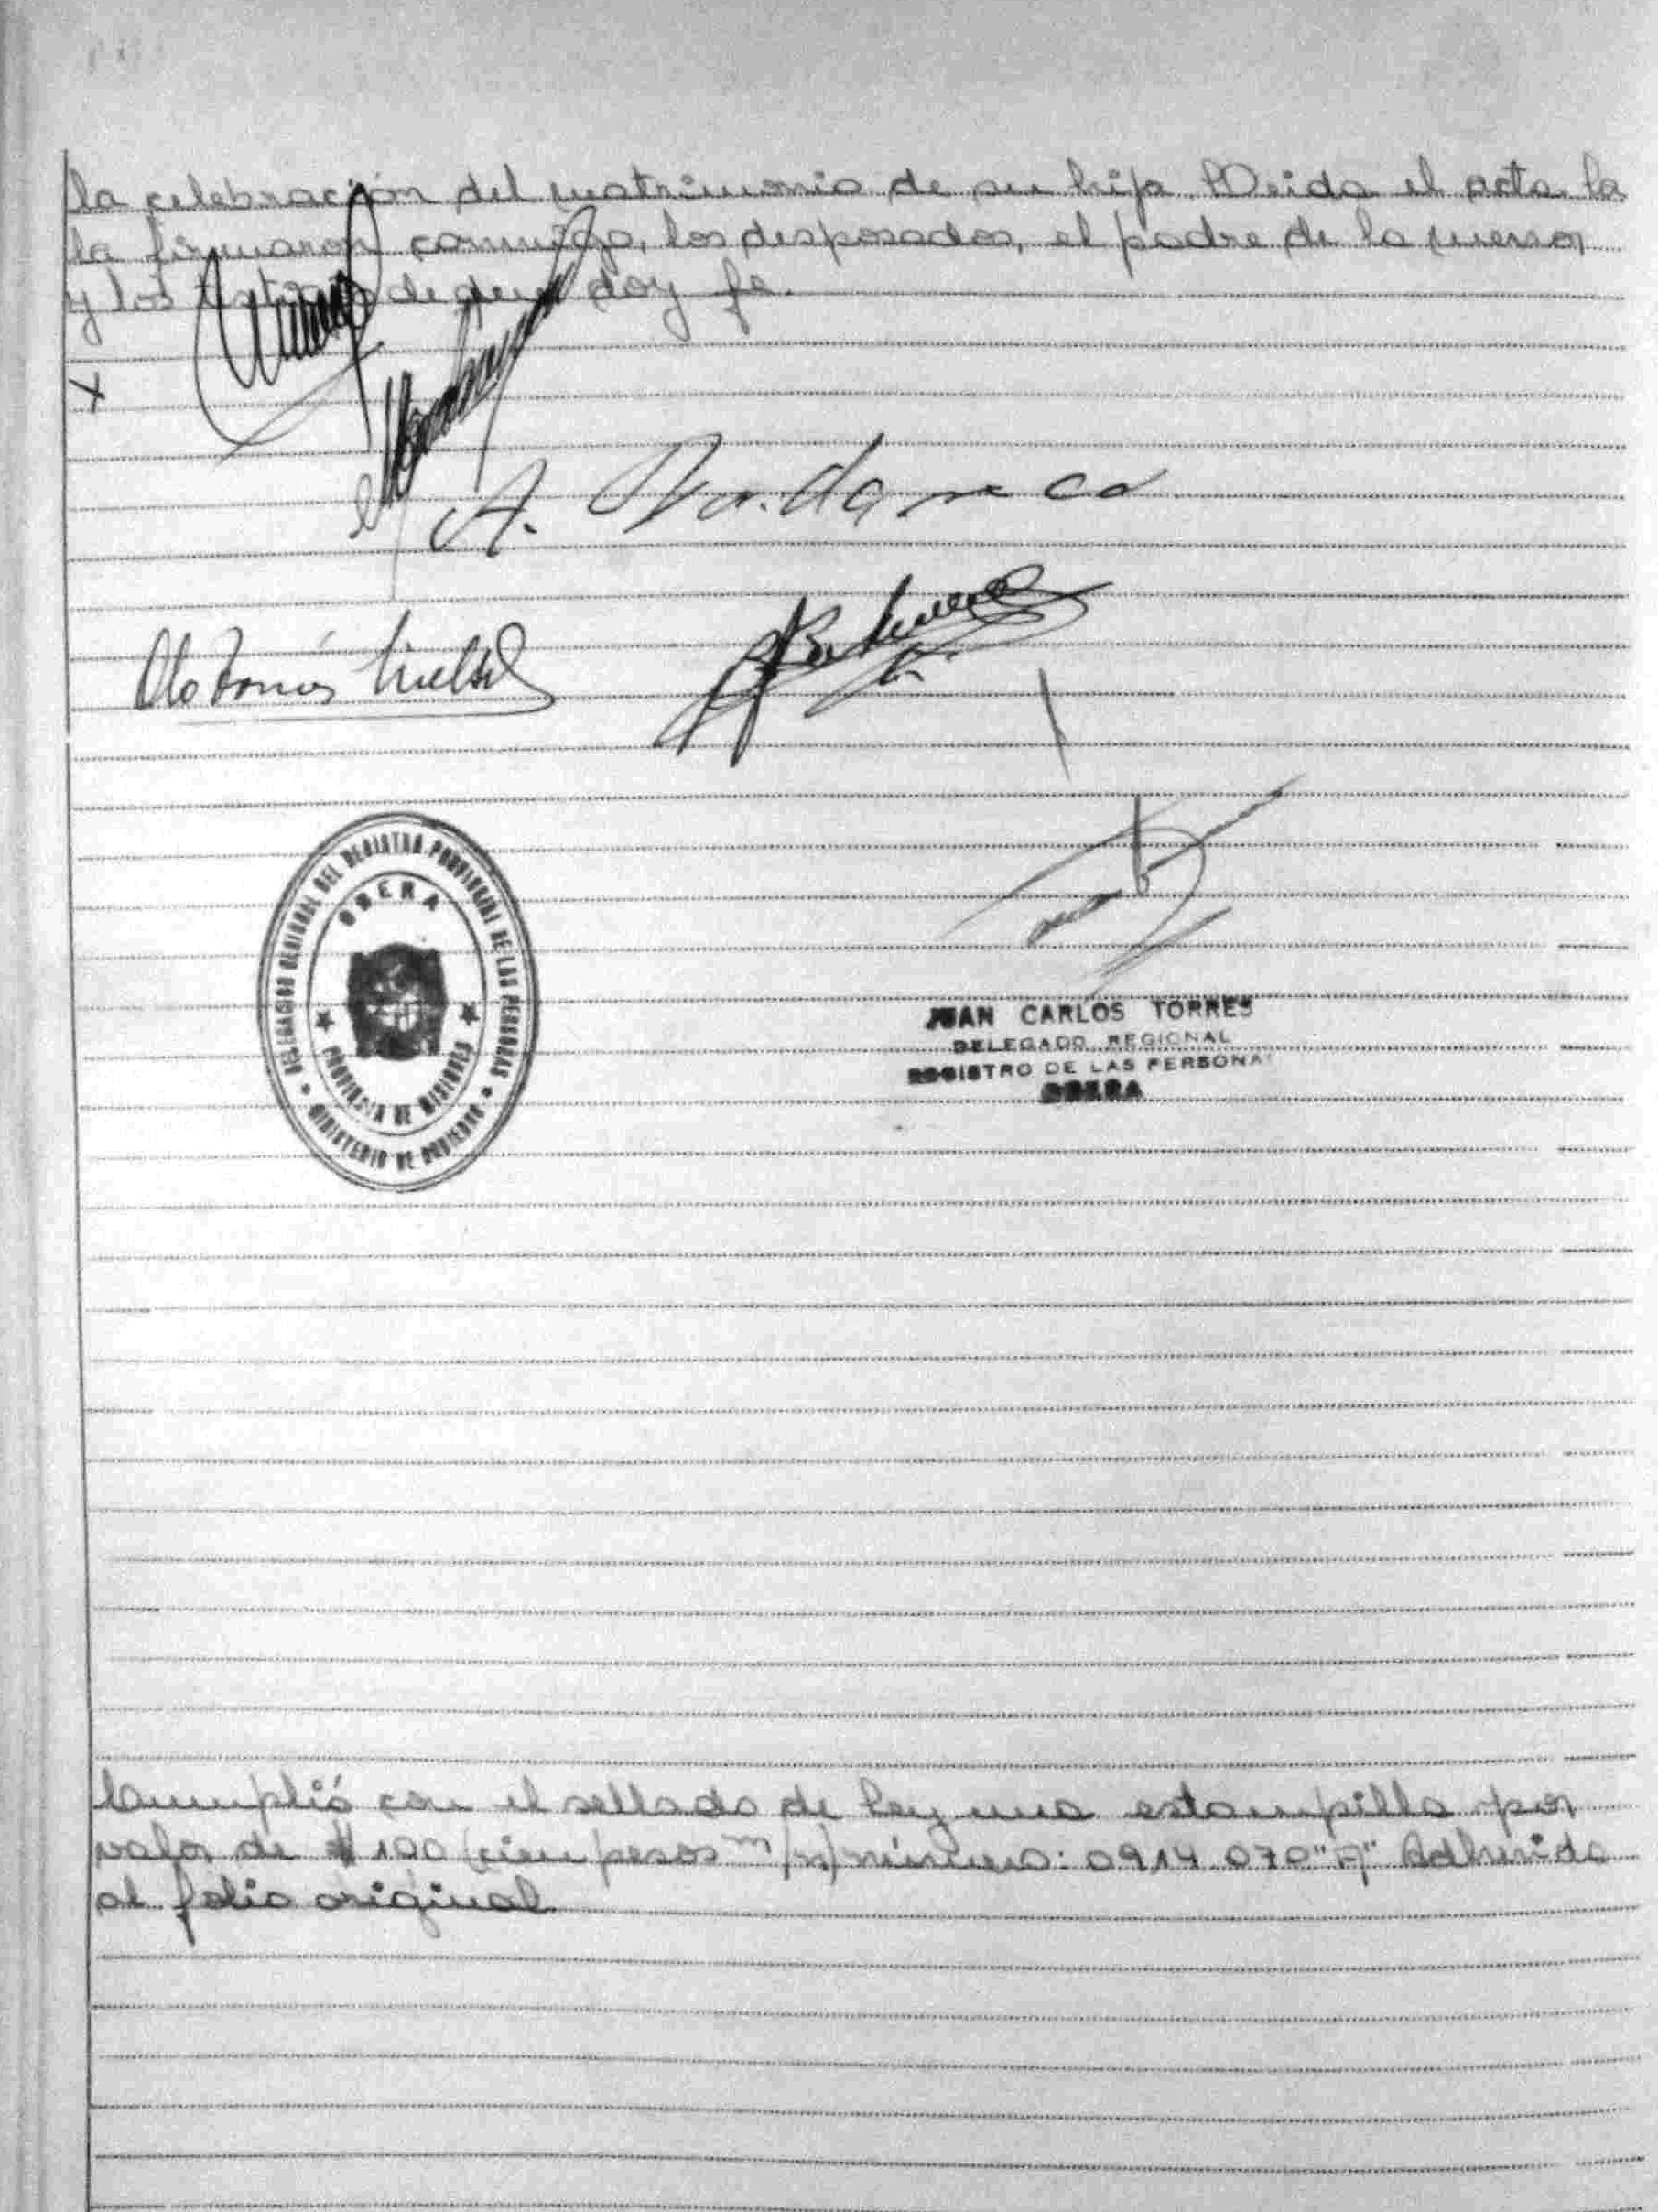 la celebración del matrimonio de su hija. Leida el acta la
la firmaron conmigo, los desposados, el padre de la menor
y los testigos de que doy fe.
X
A.
Oto Tomás
DELEGACION REGIONAL DEL REGISTRO PROVINCIAL DE LAS PERSONAS
OBERA
PROVINCIA DE MISIONES
MINISTERIO DE GOBIERNO
JUAN CARLOS TORRES
DELEGADO REGIONAL
REGISTRO DE LAS PERSONA
OBERA
Cumplió con el sellado de ley una estampilla por
valor de $ 100 (cien pesos m/n) número: 0914 070 "A" Adherida
al folio original